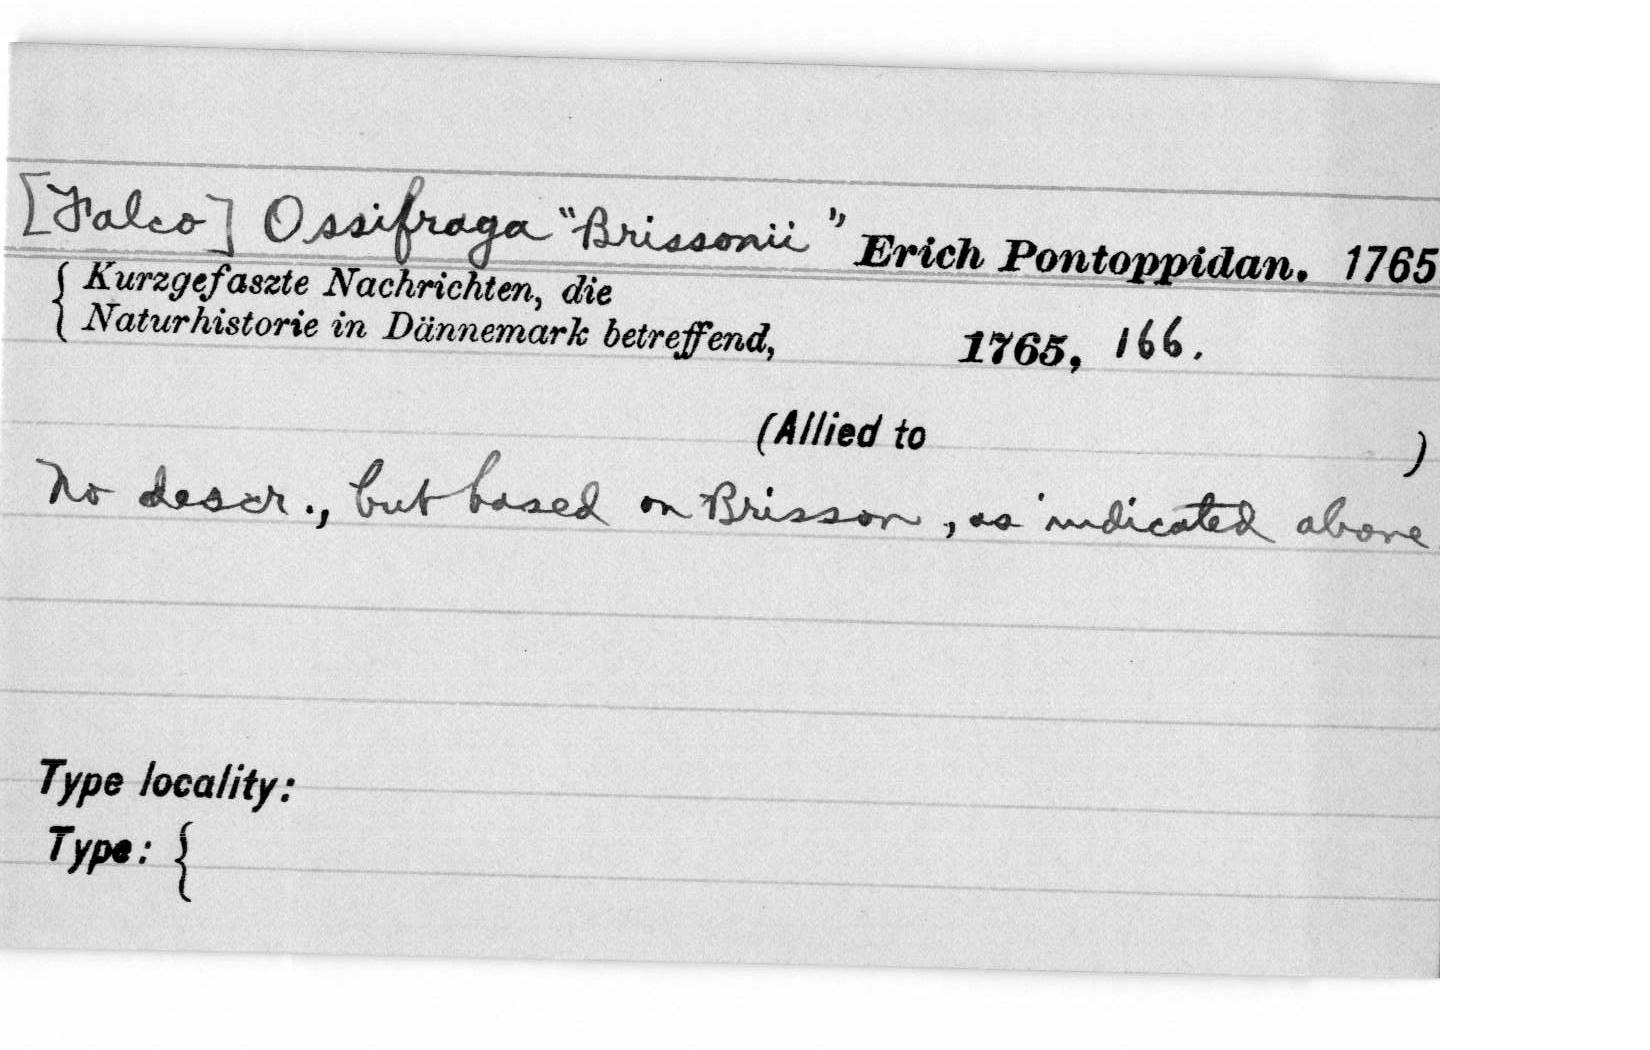 [Falco] Ossifraga "Brissonii" Erich Pontoppidan. 1765
{ Kurzgefaszte Nachrichten, die
Naturhistorie in Dännemark betreffend, 1765, 166.
(Allied to )
No descr., but based on Brisson, as indicated above
Type locality:
Type: {